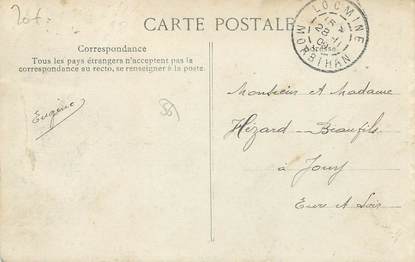 CARTE POSTALE
Correspondance
Tous les pays étrangers n'acceptent pas la
correspondance au recto, se renseigner à la poste.
Adresse
LOCMINÉ
MORBIHAN
Eugène
Monsieur et Madame
Hézard - Beaufils
à Jouy
Eure et Loir